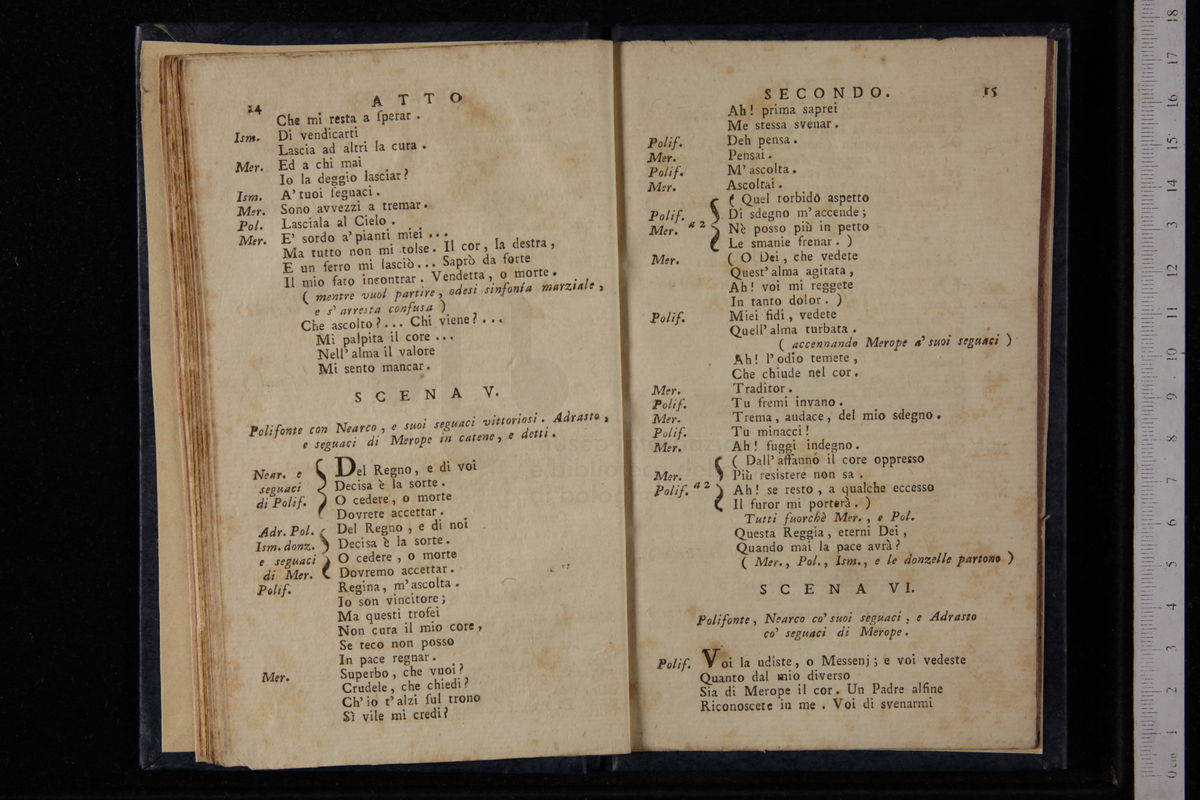 24 ATTO
Che mi resta a sperar.
Ism. Di vendicarti
Lascia ad altri la cura.
Mer. Ed a chi mai
Io la deggio lasciar?
Ism. A' tuoi seguaci.
Mer. Sono avvezzi a tremar.
Pol. Lasciala al Cielo.
Mer. E' sordo a' pianti miei...
Ma tutto non mi tolse. Il cor, la destra,
E un ferro mi lasciò... Saprò da forte
Il mio fato incontrar. Vendetta, o morte.
( mentre vuol partire, odesi sinfonia marziale,
e s' arresta confusa )
Che ascolto?... Chi viene?...
Mi palpita il core...
Nell' alma il valore
Mi sento mancar.
SCENA V.
Polifonte con Nearco, e suoi seguaci vittoriosi. Adrasto,
e seguaci di Merope in catene, e detti.
Near. e Del Regno, e di voi
seguaci Decisa è la sorte.
di Polif. O cedere, o morte
Dovrete accettar.
Adr. Pol. Del Regno, e di noi
Ism. donz. Decisa è la sorte.
e seguaci O cedere, o morte
di Mer. Dovremo accettar.
Polif. Regina, m' ascolta.
Io son vincitore;
Ma questi trofei
Non cura il mio core,
Se teco non posso
In pace regnar.
Mer. Superbo, che vuoi?
Crudele, che chiedi?
Ch' io t' alzi sul trono
Sì vile mi credi?
SECONDO. 25
Ah! prima saprei
Me stessa svenar.
Polif. Deh pensa.
Mer. Pensai.
Polif. M' ascolta.
Mer. Ascoltai.
( Quel torbido aspetto
Polif. Di sdegno m' accende;
Mer. a 2 Nè posso più in petto
Le smanie frenar. )
Mer. ( O Dei, che vedete
Quest' alma agitata,
Ah! voi mi reggete
In tanto dolor. )
Polif. Miei fidi, vedete
Quell' alma turbata.
( accennando Merope a' suoi seguaci )
Ah! l' odio temete,
Che chiude nel cor.
Mer. Traditor.
Polif. Tu fremi invano.
Mer. Trema, audace, del mio sdegno.
Polif. Tu minacci!
Mer. Ah! fuggi indegno.
( Dall' affanno il core oppresso
Mer. Più resistere non sa.
Polif. a 2 Ah! se resto, a qualche eccesso
Il furor mi porterà. )
Tutti fuorchè Mer., e Pol.
Questa Reggia, eterni Dei,
Quando mai la pace avrà?
( Mer., Pol., Ism., e le donzelle partono )
SCENA VI.
Polifonte, Nearco co' suoi seguaci, e Adrasto
co' seguaci di Merope.
Polif. Voi la udiste, o Messenj; e voi vedeste
Quanto dal mio diverso
Sia di Merope il cor. Un Padre alfine
Riconoscete in me. Voi di svenarmi
0 cm 1 2 3 4 5 6 7 8 9 10 11 12 13 14 15 16 17 18